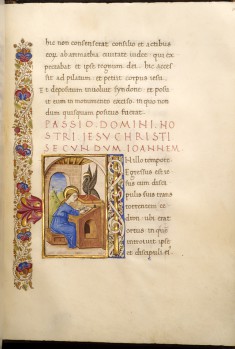 hic non consenserat consilio et actibus
eoꝝ ab arimathia ciuitate iudee: qui ex
pectabat et ipse regnum dei. hic acces
sit ad pilatum: et petiit corpus iesu.
Et depositum inuoluit syndone: et posu
it eum in monumento exciso. in quo non
dum quisquam positus fuerat.
PASSIO. DOMINI. NO
STRI. IESV. CHRISTI
SECVNDVM IOANNEM
IN illo tempore
Egressus est ie
sus cum disci
pulis suis trans
torrentem ce
dron: ubi erat
ortus in quem
introiuit ipse
et discipuli ei